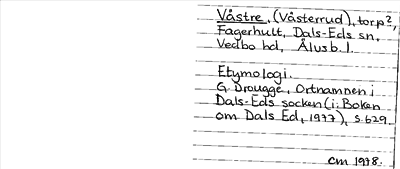 Våstre, (Våsterrud), torp?,
Fagerhult, Dals-Eds sn,
Vedbo hd, Älvsb. l.
Etymologi.
G Drougge, Ortnamnen i
Dals-Eds socken (i: Boken
om Dals Ed, 1977), s. 629.
CM 1978.